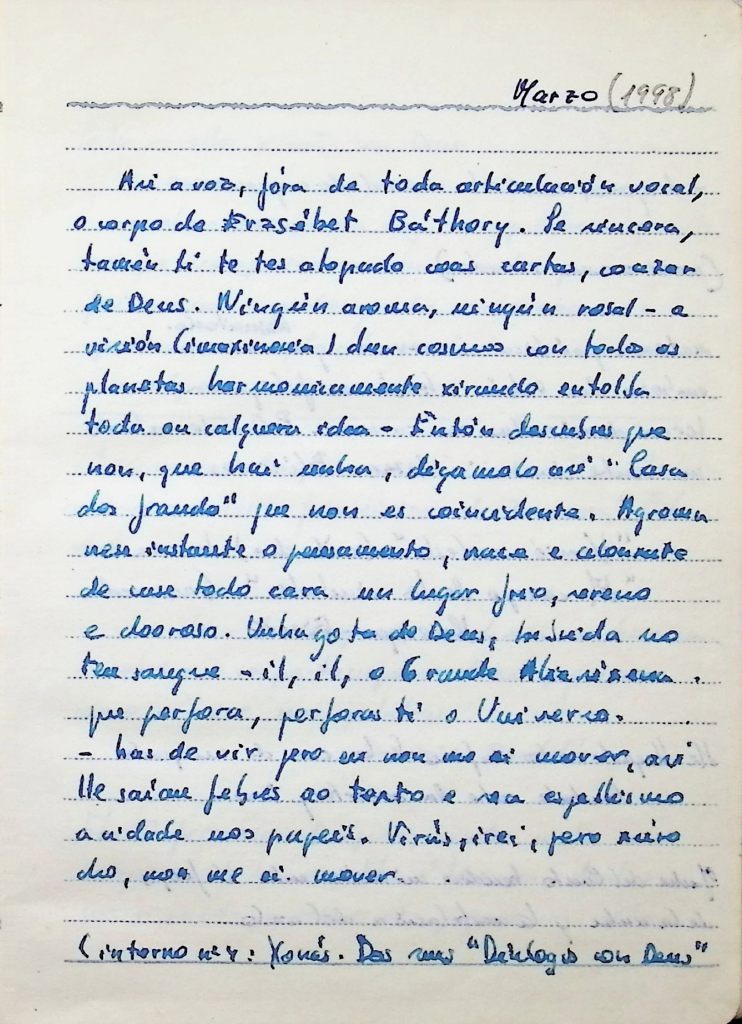 Marzo (1998)
Así a voz, fóra de toda articulación vocal,
o corpo de Erzsébet Báthory. Se sincera,
tamén ti te tes atopado coas cartas, co azar
de Deus. Ningún aroma, ningún rosal - a
visión (imaxinaria) dun cosmos con todos os
planetas harmonicamente xirando
toda ou calquera idea - Entón descubres que
non, que hai unha, digamolo así "Casa
dos" que non es coincidente. Agroma
nese instante o pensamento, nace e
de case todo cara un lugar frío, sereno
e dooroso. Unha gota de Deus, no
teu sangue - il, il, o Grande
que perfora, perforas ti o Universo.
- has de vir pero eu non me ei mover, así
lle saían febres ao texto e sen espellismo
a cidade nos papeis. Virás, irei, pero
do, non me ei mover.
(interno nº : Xonás. Dos seus "Diálogos con Deus"